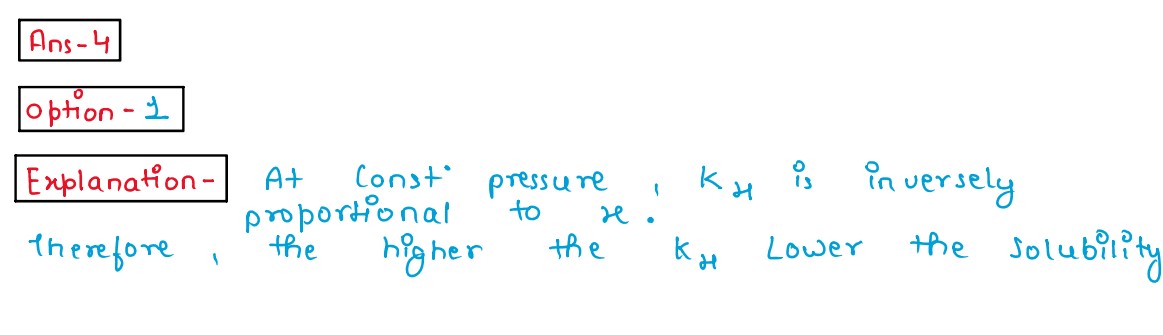 Ans-4
Option - 1
Explanation- At Const. pressure, KH is inversely
proportional to x.
Therefore, the higher the KH Lower the Solubility